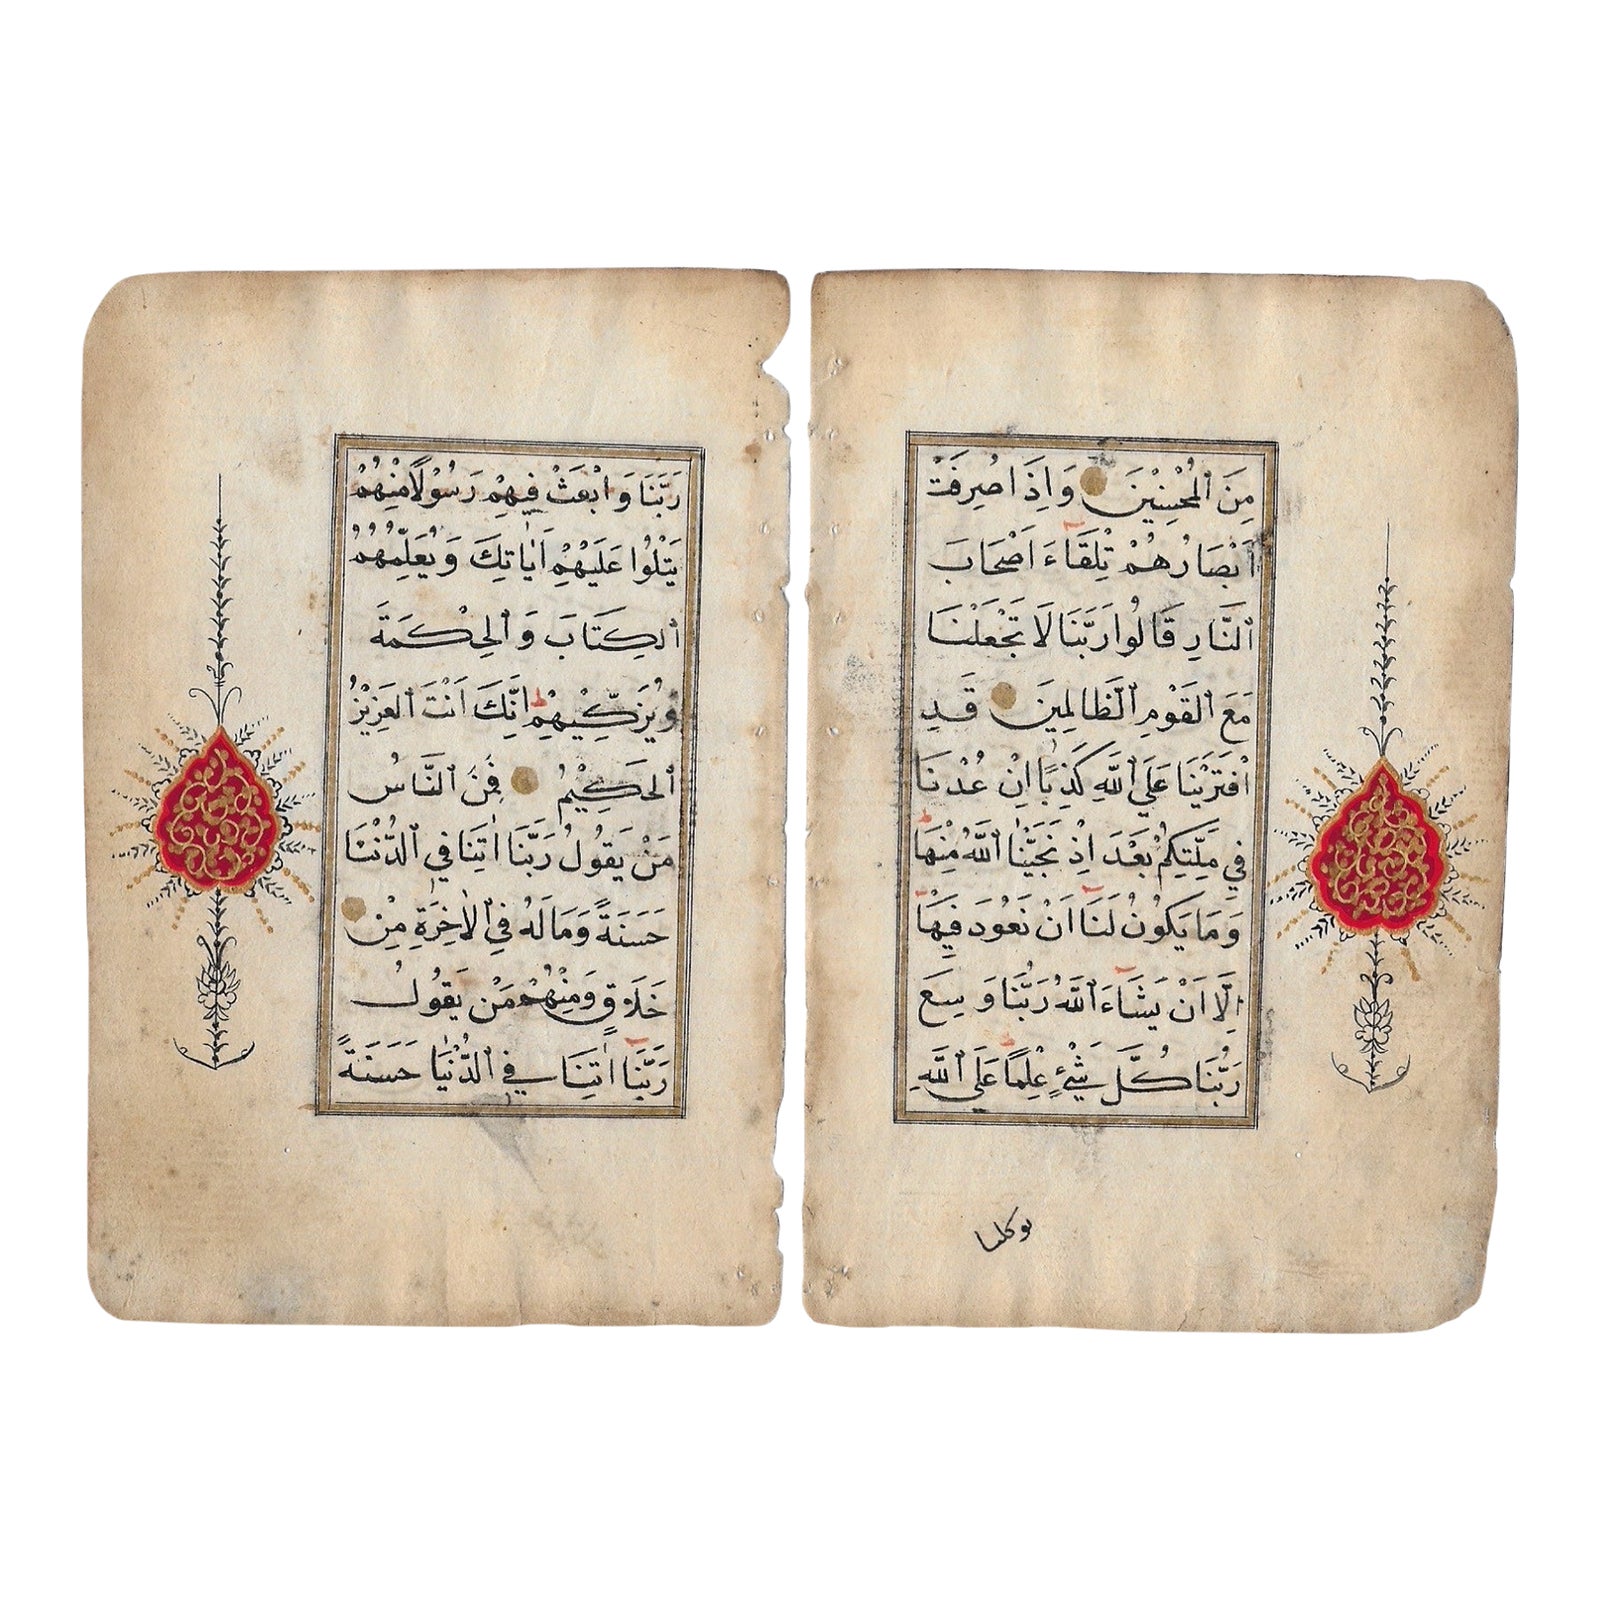 مِنَ الْمُحْسِنِينَ وَاِذَا صُرِفَتْ
اَبْصَارُهُمْ تِلْقَاءَ اَصْحَابَ
النَّارِ قَالُوا رَبَّنَا لَا تَجْعَلْنَا
مَعَ الْقَوْمِ الظَّالِمِينَ قَدِ
افْتَرَيْنَا عَلَى اللَّهِ كَذِبًا اِنْ عُدْنَا
فِي مِلَّتِكُمْ بَعْدَ اِذْ نَجَّيْنَا اللَّهُ مِنْهَا
وَمَا يَكُونُ لَنَا اَنْ نَعُودَ فِيهَا
اِلَّا اَنْ يَشَاءَ اللَّهُ رَبُّنَا وَسِعَ
رَبُّنَا كُلَّ شَيْءٍ عِلْمًا عَلَى اللَّهِ
توكلنا
رَبَّنَا وَابْعَثْ فِيهِمْ رَسُولًا مِنْهُمْ
يَتْلُوا عَلَيْهِمْ اٰيَاتِكَ وَيُعَلِّمُهُمُ
الْكِتَابَ وَالْحِكْمَةَ
وَيُزَكِّيهِمْ اِنَّكَ اَنْتَ الْعَزِيزُ
الْحَكِيمُ فَمِنَ النَّاسِ
مَنْ يَقُولُ رَبَّنَا اٰتِنَا فِي الدُّنْيَا
حَسَنَةً وَمَا لَهُ فِي الْاٰخِرَةِ مِنْ
خَلَاقٍ وَمِنْهُمْ مَنْ يَقُولُ
رَبَّنَا اٰتِنَا فِي الدُّنْيَا حَسَنَةً